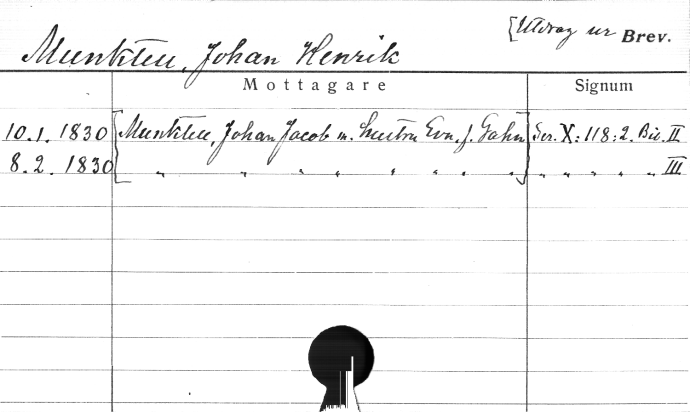 [Utdrag ur Brev.
Munktell, Johan Henrik
Mottagare Signum
10.1. 1830 [Munktell, Johan Jacob m. hustru Eva, f. Gahn] Ser. X:118:2. Bil. II
8.2. 1830 " " " " " " " " " " " " " III